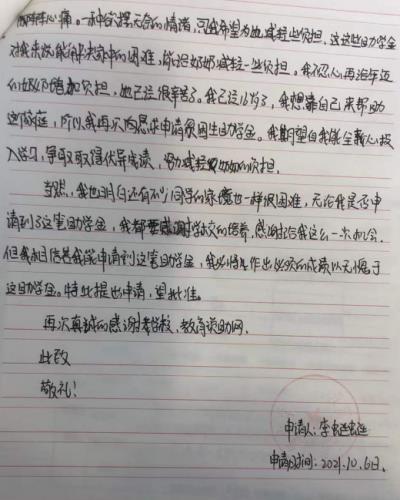 阵阵心痛。一种
我希望为她减轻些负担,这些助学金
对我来说能解决家中的困难,能让奶奶减轻一些负担。我不忍心再让年迈
的奶奶增加负担,她已经很辛苦了。我已经16岁了,我想靠自己来帮助
这个家庭,所以我再次向恳求申请贫困生助学金。我期望自我能全新心投
入学习,争取取得优异成绩,努力减轻奶奶的负担。
当然,我也明白还有不少同学的家境也一样很困难,无论我是否申
请到了这笔助学金,我都要感谢学校的培养,感谢给我这么一次机会。
但我相信若我能申请到这笔助学金,我必将作出必须的成绩以无愧于
这助学金。特此提出申请,望批准。
再次真诚的感谢贵学校,教育资助网。
此致
敬礼!
申请人:李
申请时间:2021.10.6日.